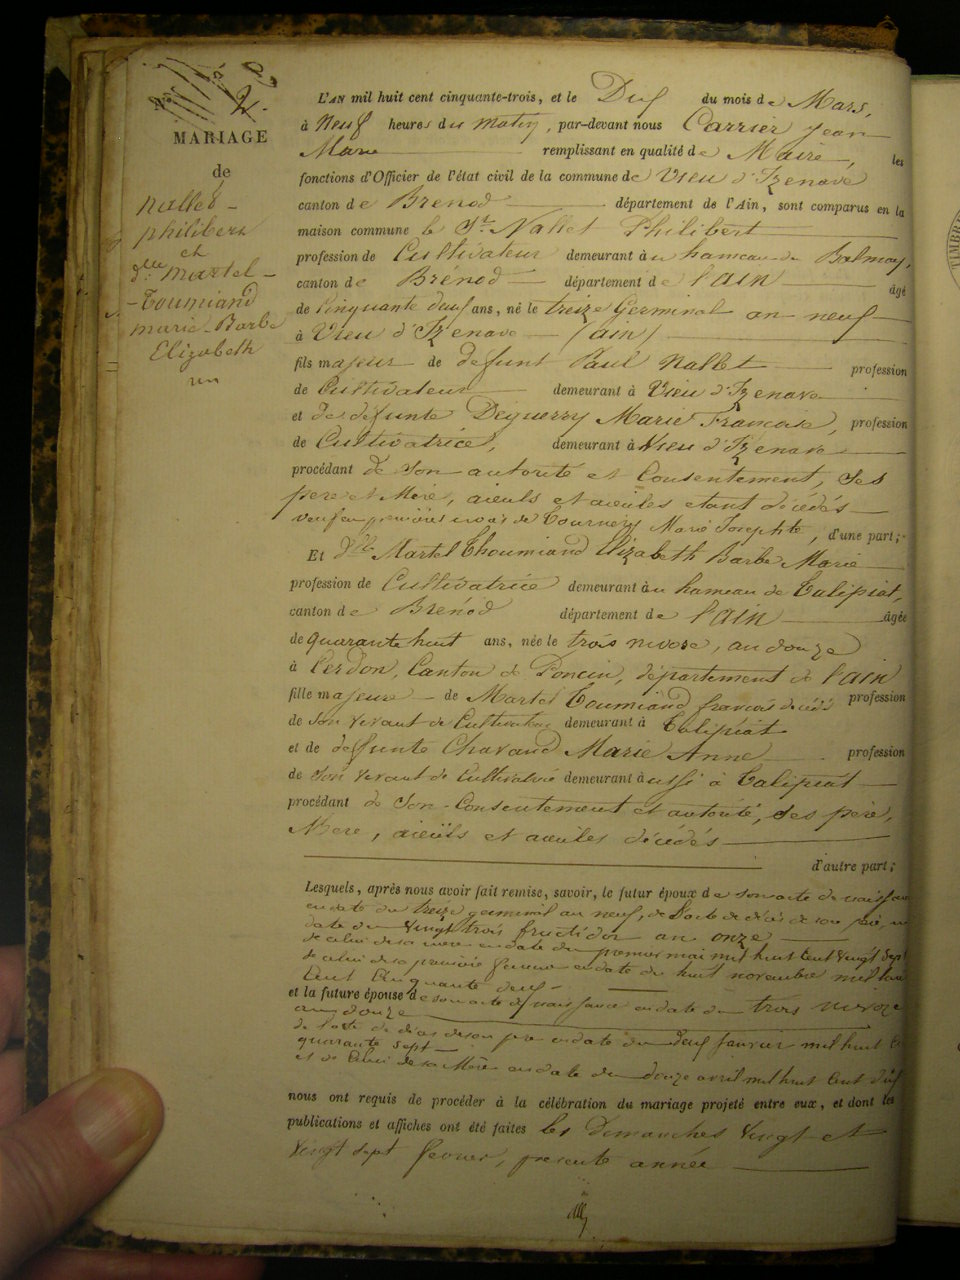 N° 2.
MARIAGE
de
Nallet
philibert
et
dlle martel
Toumiand
marie Barbe
Elizabeth
L'AN mil huit cent cinquante-trois, et le Dux du mois de Mars,
à Neuf heures du matin, par-devant nous Carrier Jean
Marie remplissant en qualité de Maire, les
fonctions d'Officier de l'état civil de la commune de Vieu d'Izenave
canton de Brenod département de l'Ain, sont comparus en la
maison commune le Sr Nallet Philibert
profession de Cultivateur demeurant à u hameau du Balmay,
canton de Brénod département de l'Ain âgé
de Cinquante deux ans, né le treize Germinal an neuf
à Vieu d'Izenave (ain)
fils majeur de defunt Paul Nallet profession
de Cultivateur demeurant à Vieu d'Izenave
et de defunte Deguerry Marie Francoise, profession
de Cultivatrice, demeurant à Vieu d'Izenave
procédant de son autorité et Consentement, ses
pere et Mere, aieuls et aieules etant décédés
veuf en premières noces de Tournery Marie Josephte, d'une part;
Et Dlle Martel Thoumiand Elizabeth Barbe Marie
profession de Cultivatrice demeurant à u hameau de Talipiat,
canton de Brenod département de l'Ain âgée
de quarante huit ans, née le trois nivose, an douze
à Cerdon, Canton de Poncin, département de l'ain
fille majeure de Martel Toumiand francois décédé profession
de son vivant de Cultivateur demeurant à Talipiat
et de deffunte Chavand Marie Anne profession
de son vivant de Cultivatrice demeurant à ussi à Talipiat
procédant de son Consentement et autorité, ses père,
Mere, aieüls et aieules décédés
d'autre part;
Lesquels, après nous avoir fait remise, savoir, le futur époux de son acte de naissance
en date du treize germinal an neuf, de l'acte de décès de son père, en
date du vingt trois fructidor an onze
de celui de sa mere en date du premier mai mil huit Cent vingt sept
de celui de sa premiere femme en date du huit novembre mil huit
Cent Cinquante deux
et la future épouse de son acte de naissance en date du trois nivoze
an douze
de l'acte de décès de son pere en date du deux fanvier mil huit Ct
quarante sept
et de Celui de sa Mère en date du douze avril mil huit Cent dix
nous ont requis de procéder à la célébration du mariage projeté entre eux, et dont les
publications et affiches ont été faites les dimanches vingt et
vingt sept fevrier, presente année